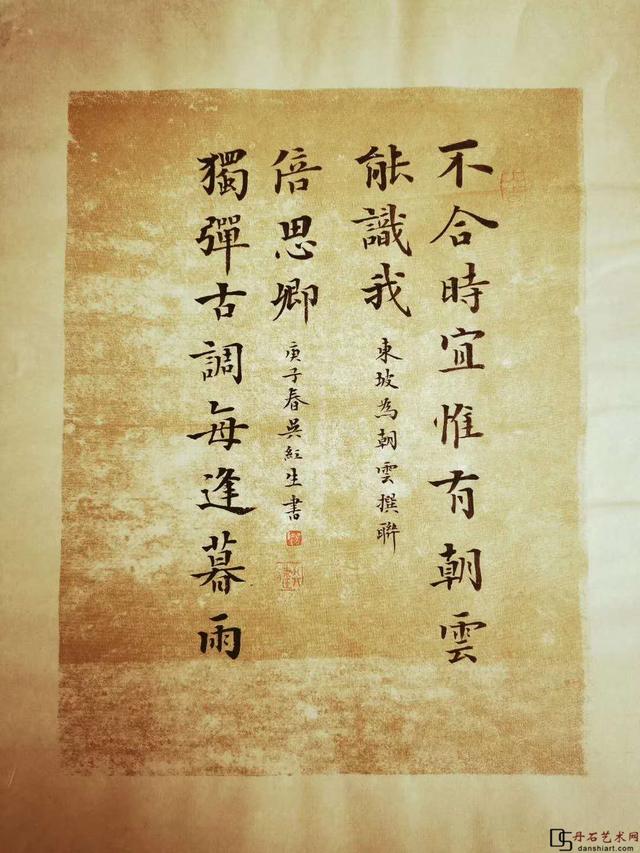 不合時宜惟有朝雲
能識我
東坡為朝雲撰聯
獨彈古調每逢暮雨
倍思卿
庚子春吳紅生書
丹石艺术网
danshiart.com